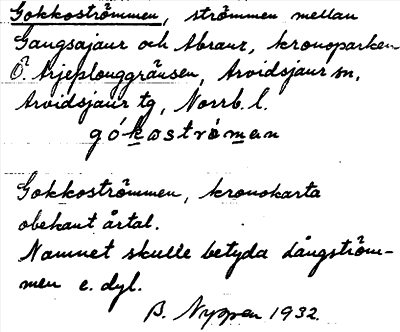 Gokkoströmmen, strömmen mellan
Gaugsajaur och Abraur, kronoparken
Ö. Arjeplouggränsen, Arvidsjaur sn,
Arvidsjaur tg, Norrb. l.
gókoströman
Gokkoströmmen, kronokarta
obekant årtal.
Namnet skulle betyda Långström-
men e. dyl.
B. Nygren 1932.